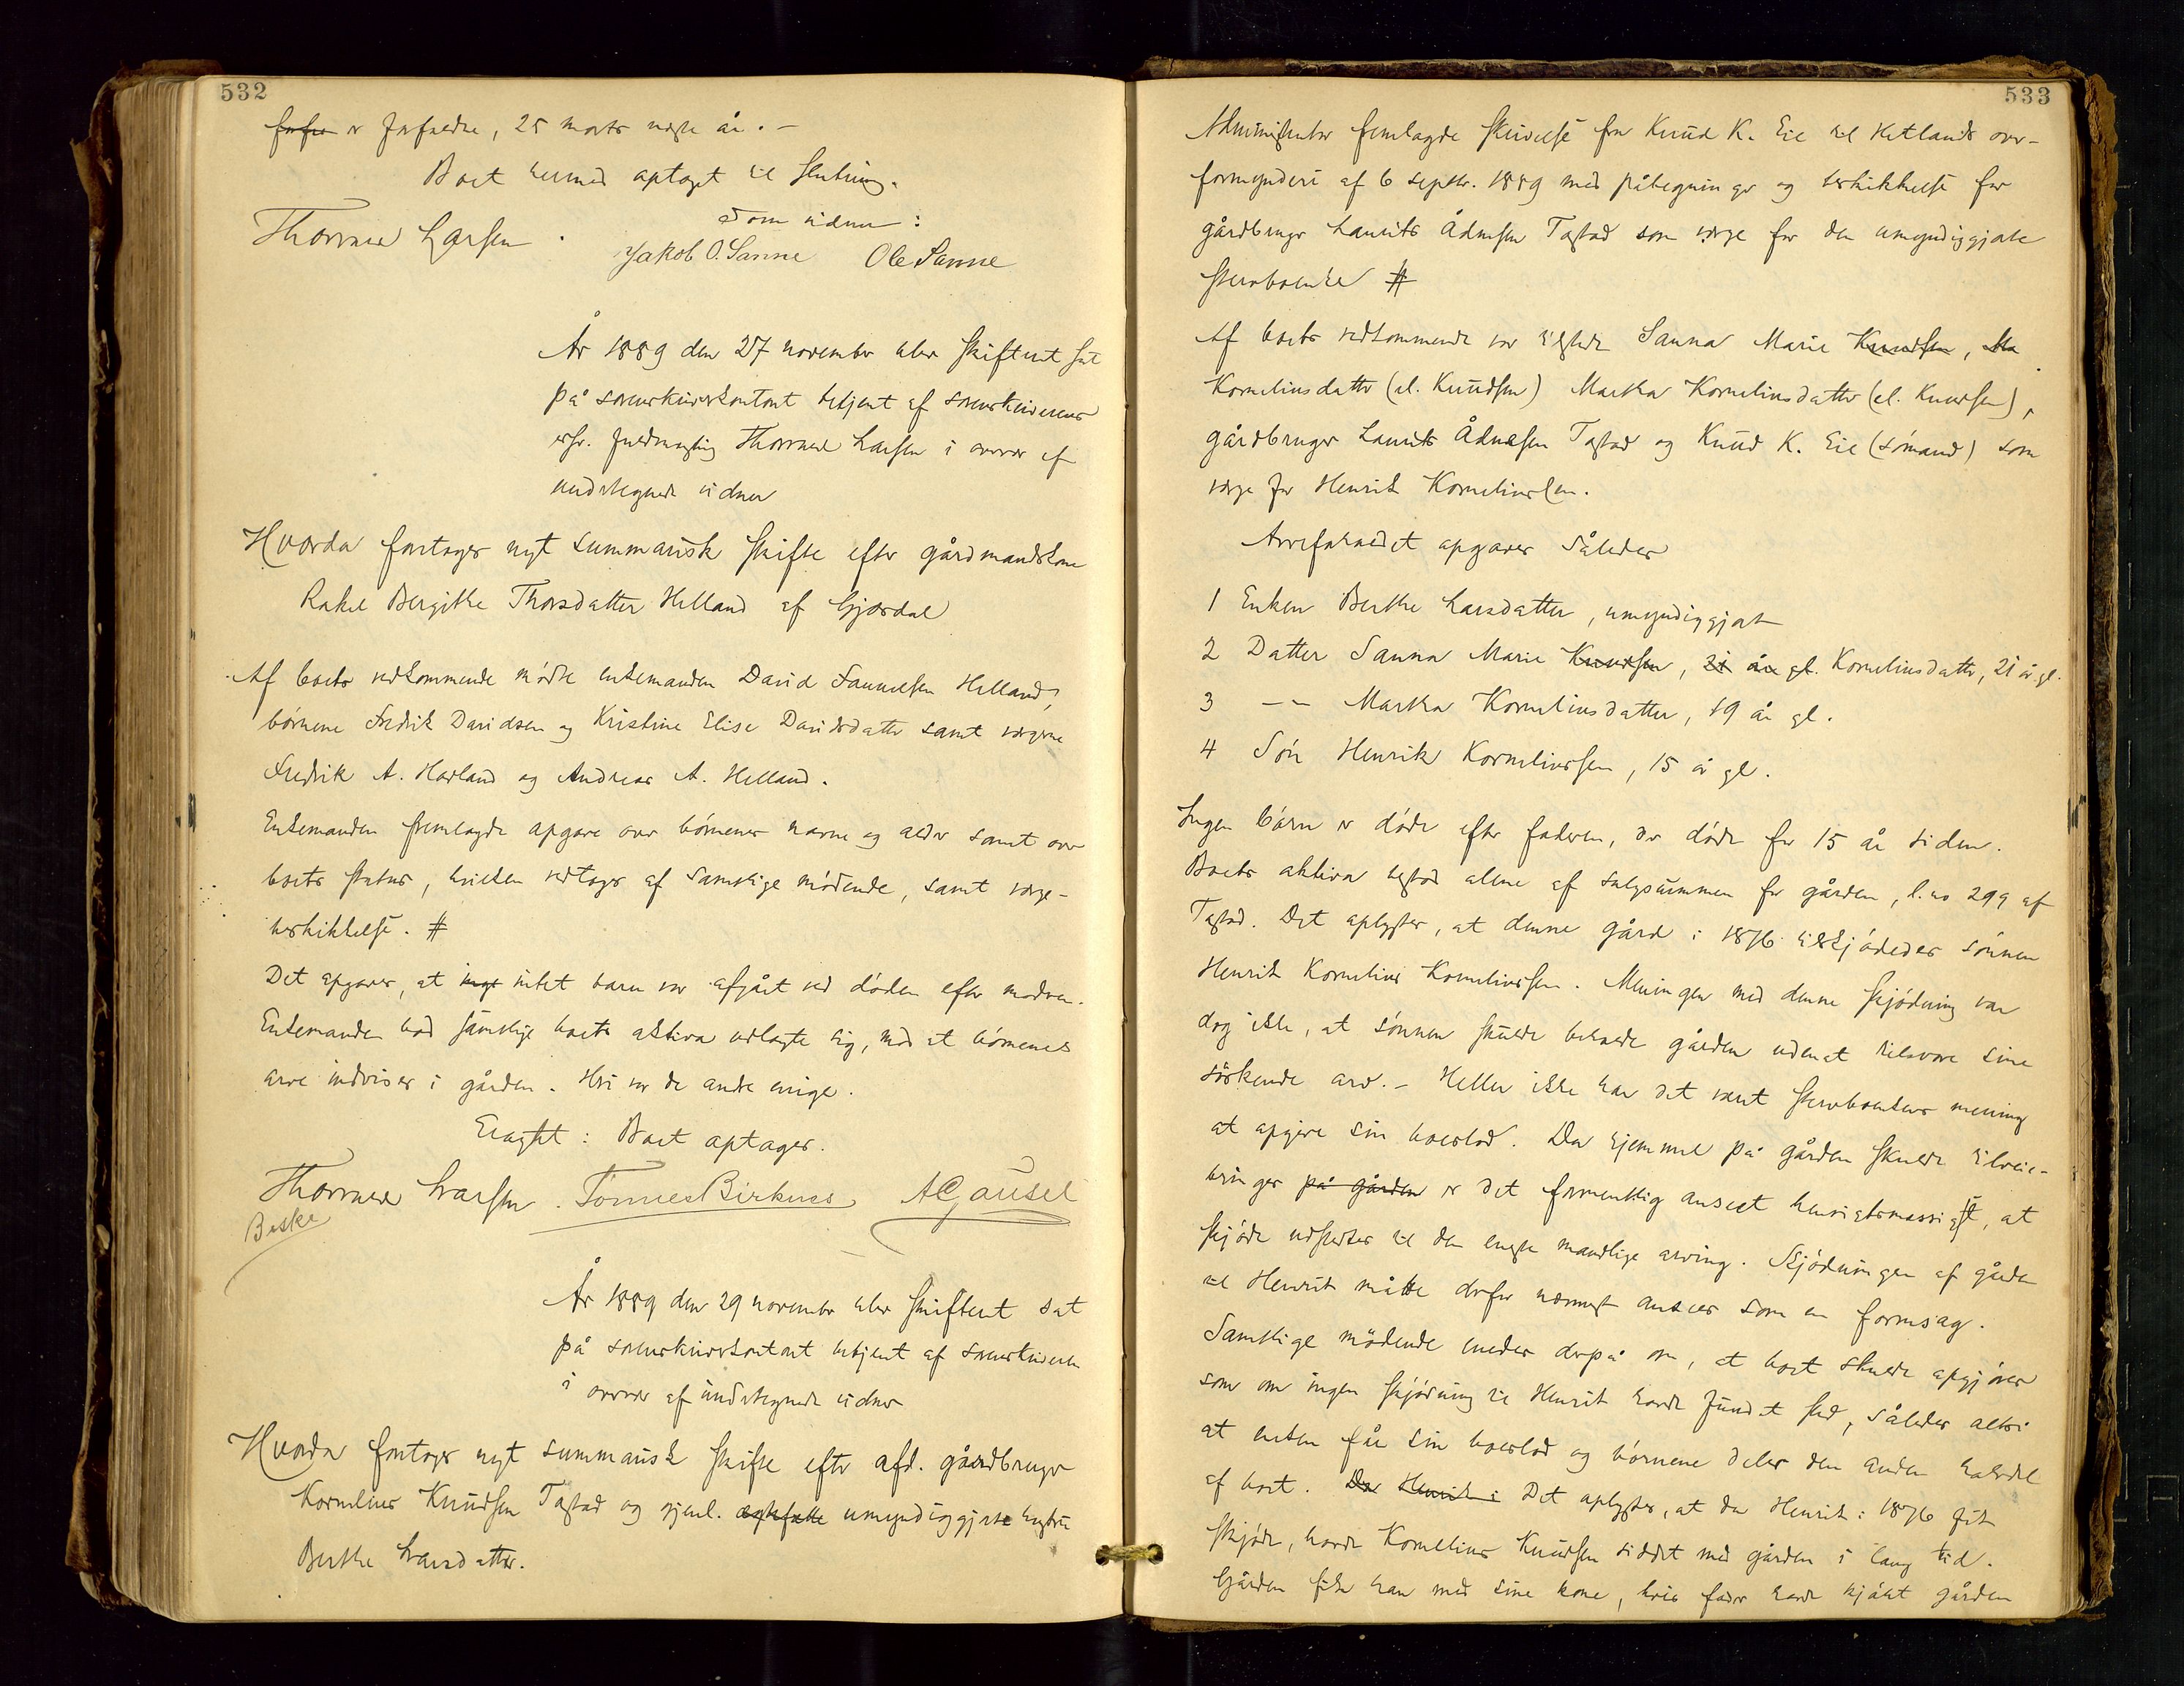 532
forfa er forfaldne, 25 marts næste år. –
Boet hermed optaget til slutning.
Som vidner:
Thorvald Larsen. Jakob O. Sanne Ole Sanne
År 1889 den 27 november blev skifteret sat
på sorenskriverkontoret betjent af sorenskriverens
edsv. fuldmægtig Thorvald Larsen i overvær af
undertegnede vidner
Hvorda foretoges nyt summarisk skifte efter gårdmandskone
Rakel Bergithe Thorsdatter Helland af Gjesdal
Af boets vedkommende mødte enkemanden David Samuelsen Helland,
børnene Fredrik Davidsen og Kristine Elise Davidsdatter samt værgerne
Fredrik A. Haaland og Andreas A. Helland.
Enkemanden fremlagde opgave over børnenes navne og alder samt over
boets status, hvilken vedtoges af samtlige mødende, samt værge-
beskikkelse. #
Det opgaves, at inget intet barn var afgået ved døden efter moderen.
Enkemanden bad samtlige boets aktiva udlagte sig, mod at børnenes
arv indvises i gården. Heri var de andre enige.
Eragtet: Boet optages.
Thorvald Larsen. Tønnes Birknes A Gausel
Beske
År 1889 den 29 november blev skifteret sat
på sorenskriverkontoret betjent af sorenskriveren
i overvær af undertegnede vidner
Hvorda foretoges nyt summarisk skifte efter afd. gårdbruger
Kornelius Knudsen Tastad og gjenl. ægtefælle umyndiggjorte hustru
Berthe Larsdatter.
533
Administrator fremlagde skrivelse fra Knud K. Eie til Hetlands over-
formynderi af 6 septbr. 1889 med påtegninger og beskikkelse for
gårdbruger Laurits Ådnesen Tastad som værge for den umyndiggjorte
stervboenke #
Af boets vedkommende var tilstede Sanna Marie Knudsen, Ma
Korneliusdatter (el. Knudsen) Martha Korneliusdatter (el. Knudsen),
gårdbruger Laurits Ådnesen Tastad og Knud K. Eie (sømand) som
værge for Henrik Korneliussen.
Arveforholdet opgaves således
1 Enken Berthe Larsdatter, umyndiggjort
2 Datter Sanna Marie Knudsen, 21 år gl. Korneliusdatter, 21 år gl.
3 – – Martha Korneliusdatter, 19 år gl.
4 Søn Henrik Korneliussen, 15 år gl.
Ingen børn er døde efter faderen, der døde for 15 år siden.
Boets aktiva bestod alene af salgssummen for gården, l. no 299 af
Tastad. Det oplystes, at denne gård i 1876 tilskjødedes sønnen
Henrik Kornelius Korneliussen. Meningen med denne skjødning var
dog ikke, at sønnen skulde beholde gården uden at tilsvare sine
søskende arv. – Heller ikke har det været stervboenkens mening
at opgive sin boeslod. Da hjemmel på gården skulde tilveie-
bringes på gården er det formentlig anseet hensigtsmæssigst, at
skjøde udstedtes til den eneste mandlige arving. Skjødningen af gården
til Henrik måtte derfor nærmest ansees som en formsag.
Samtlige mødende enedes derpå om, at boet skulde opgjøres
som om ingen skjødning til Henrik havde fundet sted, således altså
at enken får sin boeslod og børnene deler den anden halvdel
af boet. Da Henrik i Det oplystes, at da Henrik i 1876 fik
skjøde, havde Kornelius Knudsen siddet med gården i lang tid.
Gården fik han med sine kone, hvis fader havde kjøbt gården